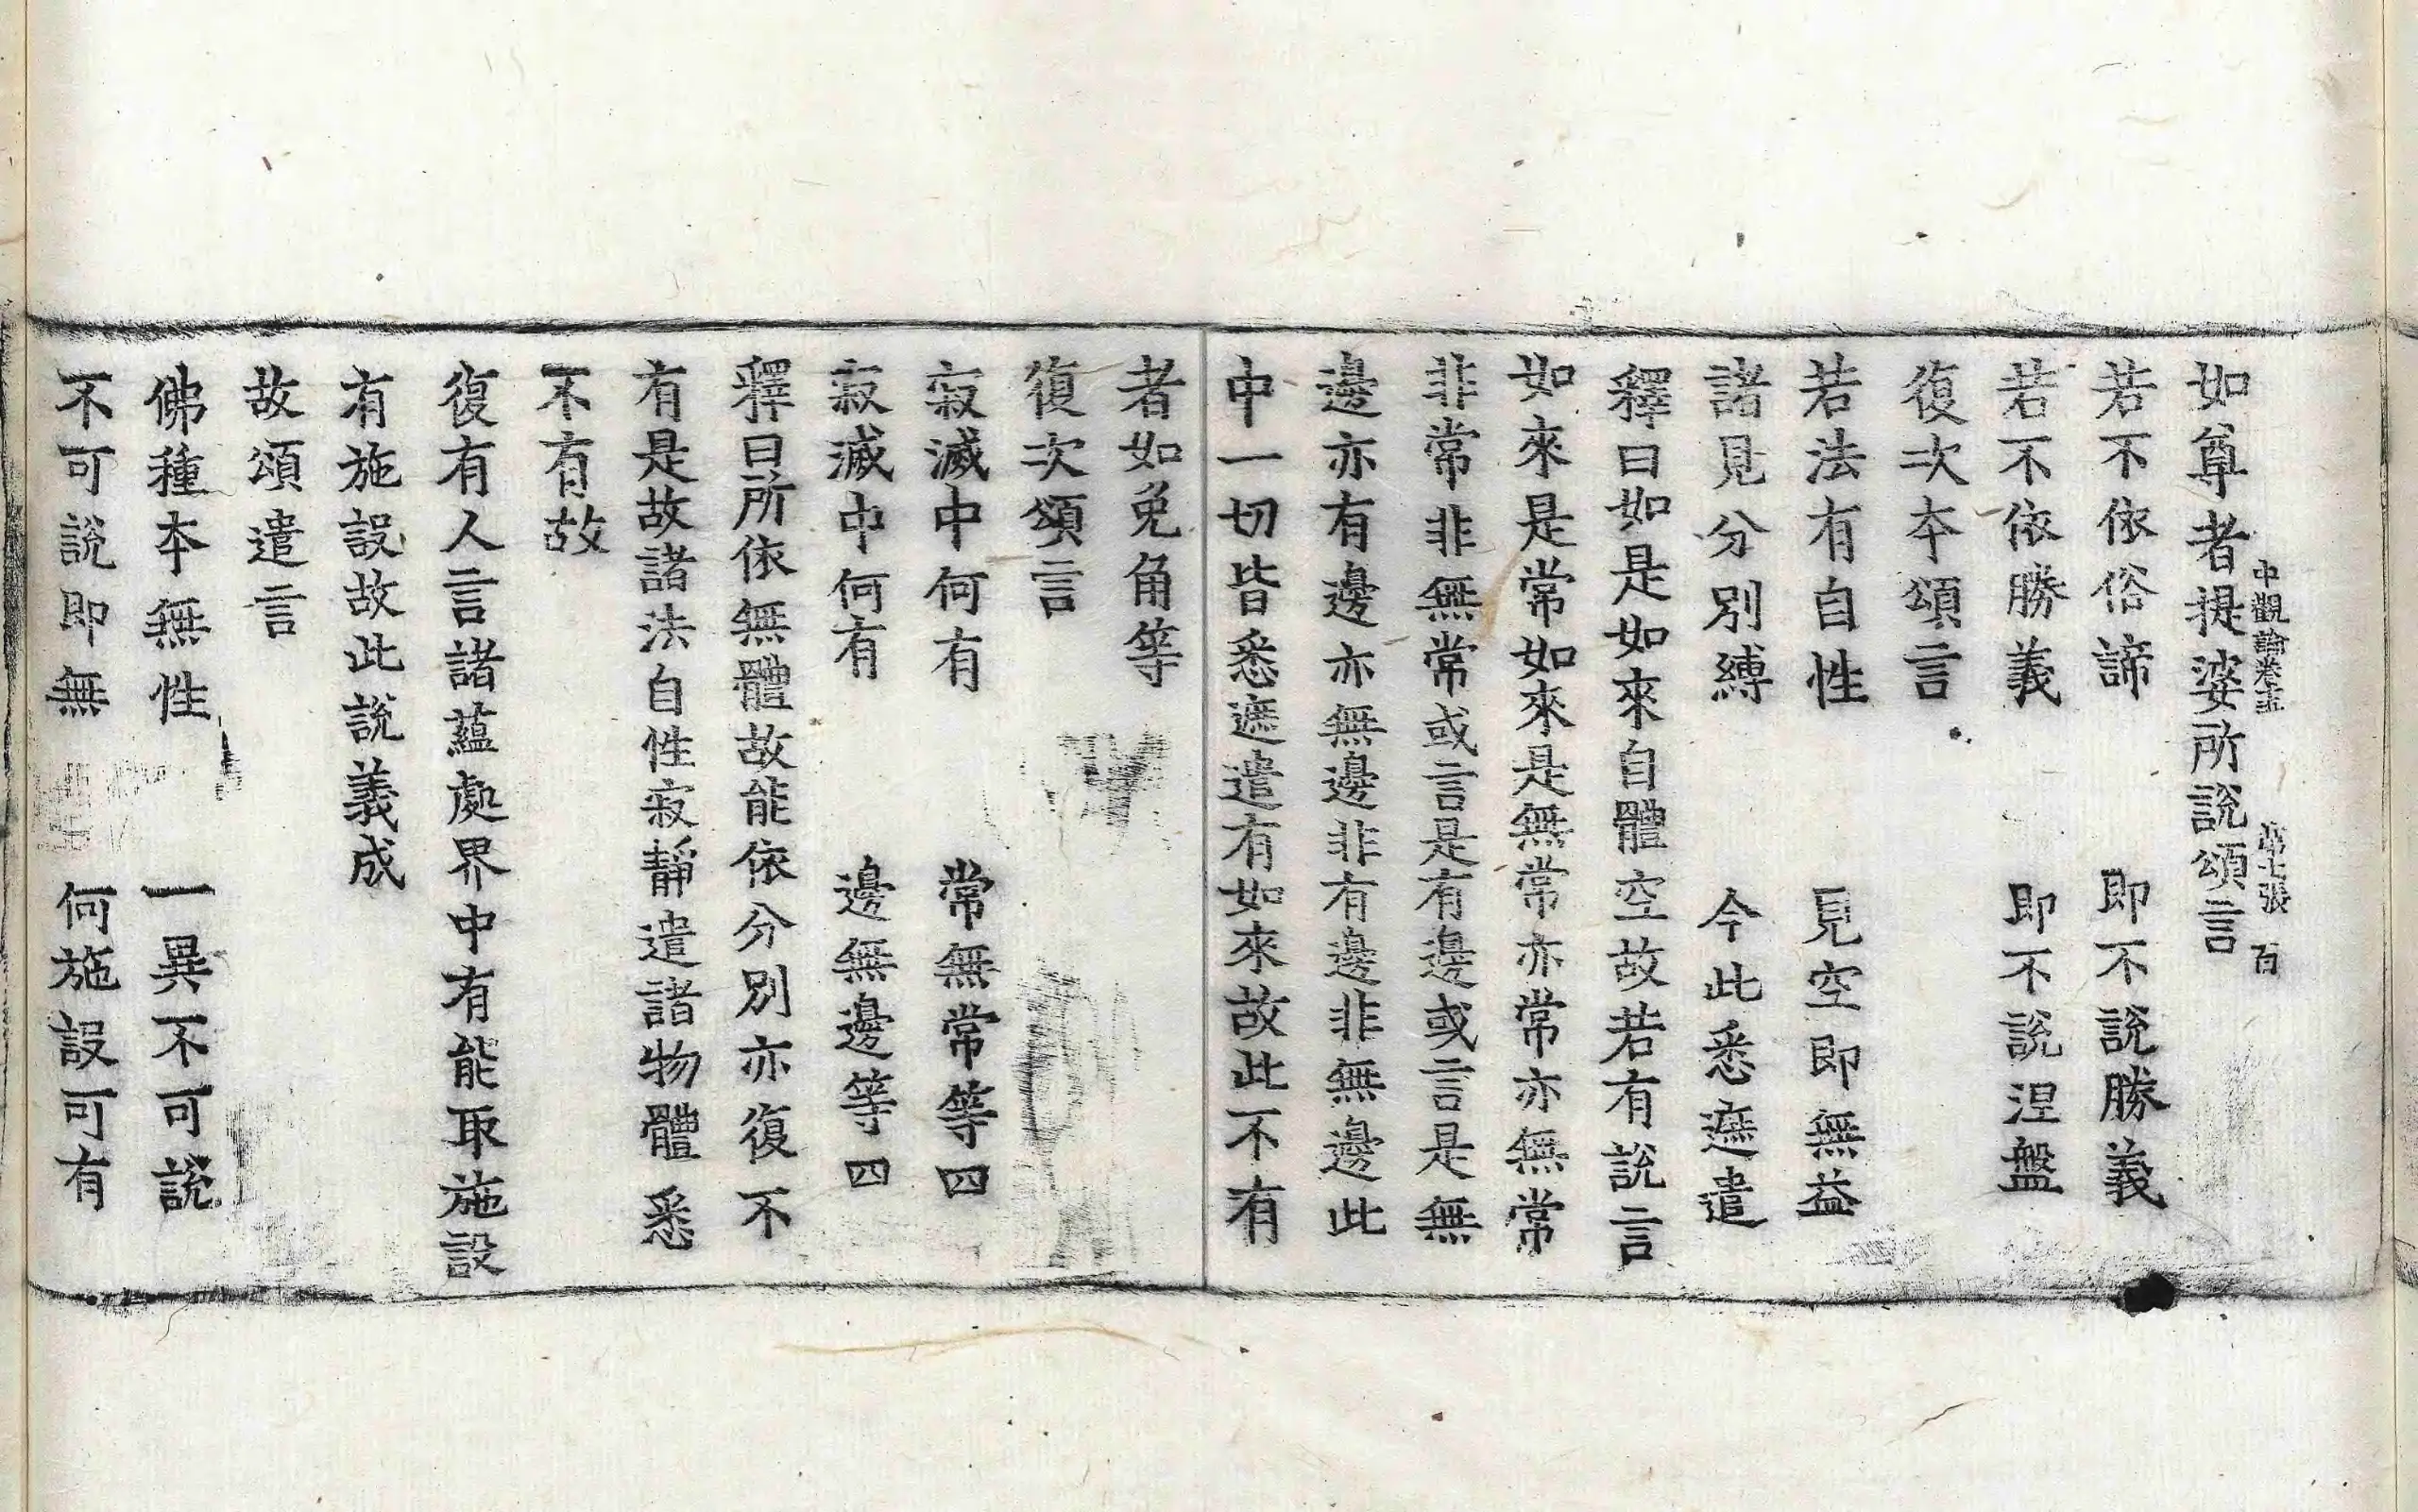 中觀論卷十五 第七張 百
如尊者提婆所說頌言
若不依俗諦 即不說勝義
若不依勝義 即不說涅盤
復次本頌言
若法有自性 見空即無益
諸見分別縛 今此悉遮遣
釋曰如是如來自體空故若有說言
如來是常如來是無常亦常亦無常
非常非無常或言是有邊或言是無
邊亦有邊亦無邊非有邊非無邊此
中一切皆悉遮遣有如來故此不有
者如兔角等
復次頌言
寂滅中何有 常無常等四
寂滅中何有 邊無邊等四
釋曰所依無體故能依分別亦復不
有是故諸法自性寂靜遣諸物體悉
不有故
復有人言諸蘊處界中有能取施設
有施設故此說義成
故頌遣言
佛種本無性 一異不可說
不可說即無 何施設可有